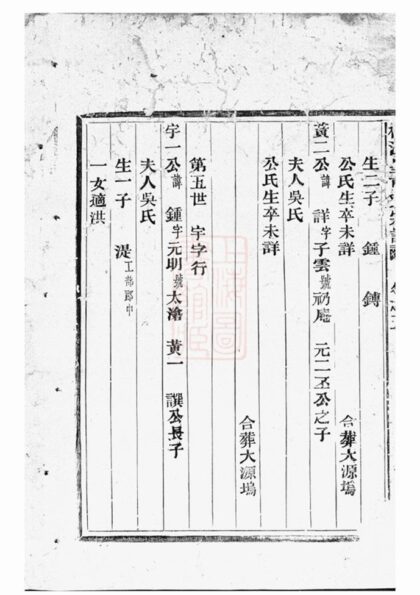 生二子 鍾 鏄
公氏生卒未詳 合葬大源塢
黃二公諱 詳字子雲號礽庵 元二丕公之子
夫人吳氏
公氏生卒未詳 合葬大源塢
第五世 宇字行
宇一公諱 鍾字元明號太滄 黃一 譔公長子
夫人吳氏
生一子 湜工部郎中
一女適洪